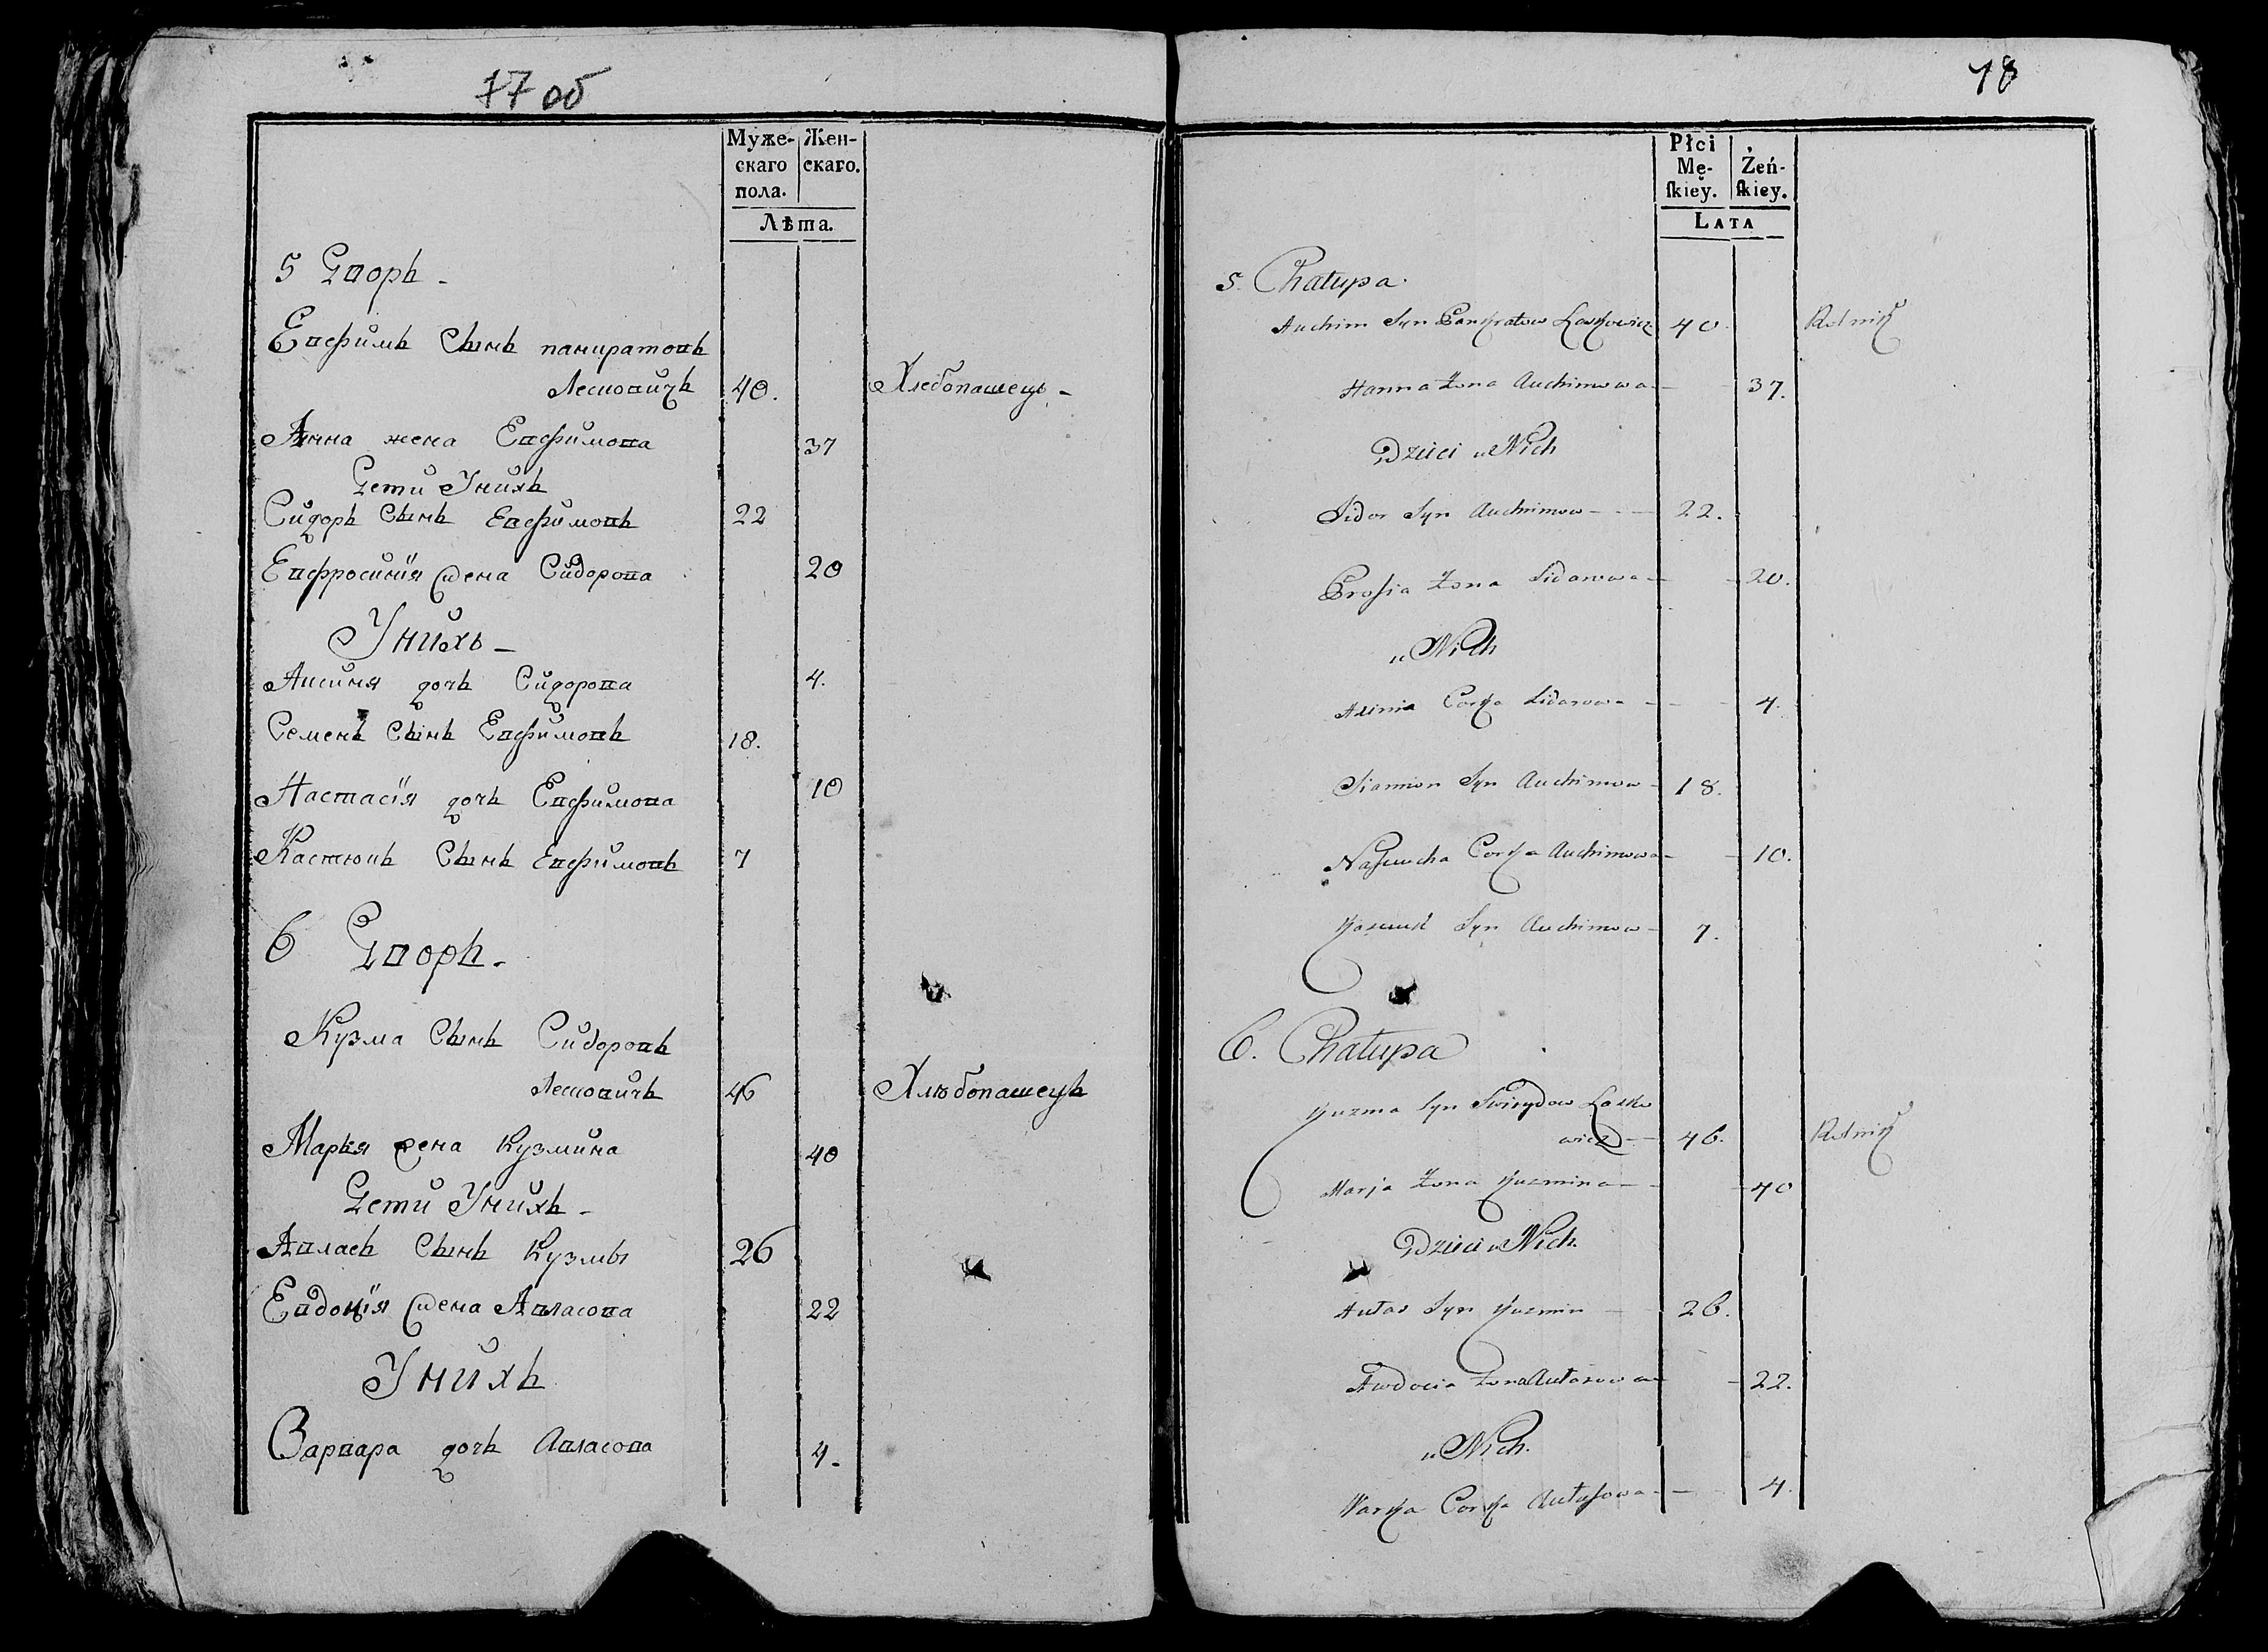 17 об
Муже-
скаго
пола.
Жен-
скаго.
Лѣта.
5 Дворъ -
Евфимъ Сынъ панкратовъ
Лесковичъ 40. Хлебопашецъ -
Анна жена Евфимова 37
Дети Унихъ
Сидоръ Сынъ Евфимовъ 22
Евфросинія жена Сидорова 20
Унихъ -
Аксиня дочь Сидорова 4.
Семенъ Сынъ Евфимовъ 18.
Настасія дочь Евфимова 10
Кастюкъ Сынъ Евфимовъ 7
6 Дворъ -
Кузма Сынъ Сидоровъ
Лесковичъ 46 Хлѣбопашецъ
Марья жена Кузмина 40
Дети Унихъ -
Авласъ Сынъ Кузмы 26
Евдокія жена Авласова 22
Унихъ
Варвара дочь Авласова 4 -
18
Płci
Mę-
ſkiey.
Żeń-
ſkiey.
LATA
5. Chałupa.
Auchim Syn Pankratow Laskowicz 40. Rolnik
Hanna Żona Auchimowa - 37.
Dzieci u Nich
Sidor Syn Auchimow - - - 22.
Prosia Żona Sidorowa - - 20.
u Nich
Axinia Corka Sidorowa - - - 4.
Siamion Syn Auchimow - 18.
Nasciucha Corka Auchimowa - - 10.
Kasciuk Syn Auchimow - 7.
6. Chałupa
Kuzma Syn Swirydow Lasko
wicz - - 46. Rolnik
Marja Żona Kuzmina - - - 40
Dzieci u Nich.
Aułas Syn Kuzmin - 26.
Awdocia Żona Aułasowa - 22.
u Nich.
Warka Corka Aułasowa - - 4.